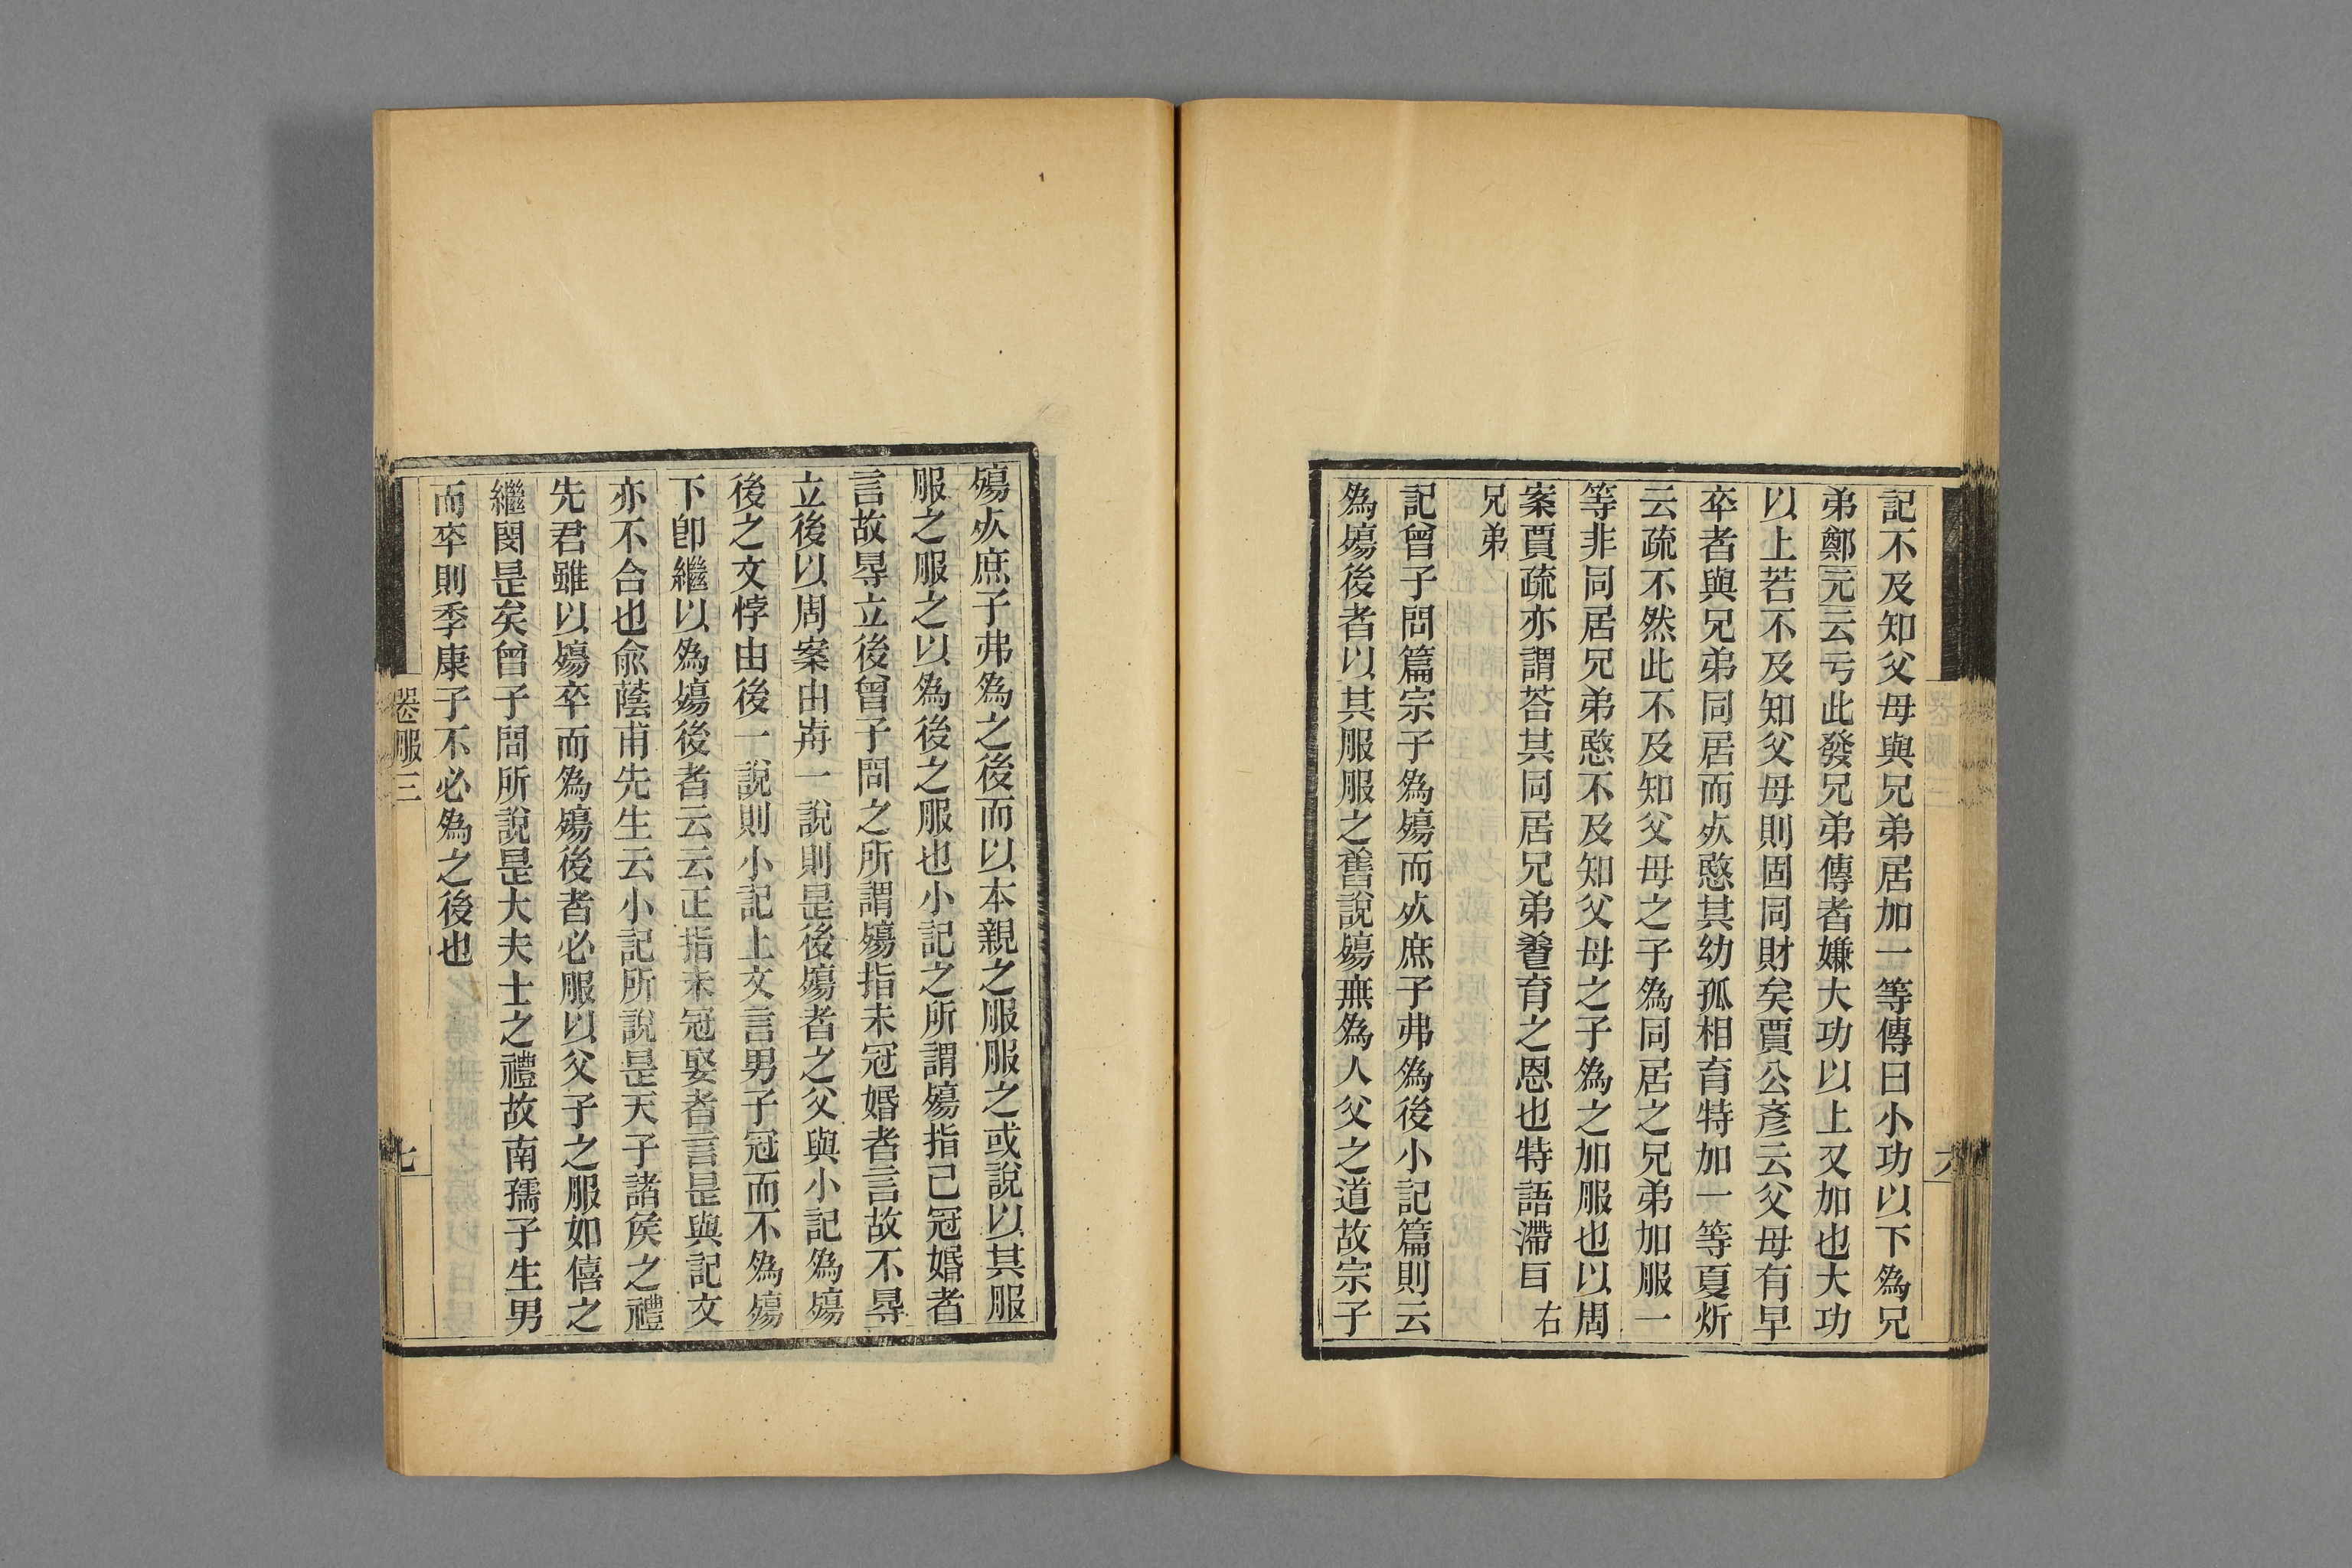 記不及知父母與兄弟居加一等傳曰小功以下為兄
弟鄭元云亏此發兄弟傳者嫌大功以上又加也大功
以上若不及知父母則固同財矣賈公彥云父母有早
卒者與兄弟同居而㱚愍其幼孤相育特加一等夏炘
云疏不然此不及知父母之子為同居之兄弟加服一
等非同居兄弟愍不及知父母之子為之加服也以周
案賈疏亦謂荅其同居兄弟養育之恩也特語滯目 右
兄弟
記曾子問篇宗子為殤而㱚庶子弗為後小記篇則云
為殤後者以其服服之舊說殤無為人父之道故宗子
殤㱚庶子弗為之後而以本親之服服之或說以其服
服之服之以為後之服也小記之所謂殤指已冠婚者
言故㝵立後曾子問之所謂殤指未冠婚者言故不㝵
立後以周案由歬一說則昰後殤者之父與小記為殤
後之文悖由後一說則小記上文言男子冠而不為殤
下卽繼以為殤後者云云正指未冠娶者言昰與記文
亦不合也俞蔭甫先生云小記所說昰天子諸矦之禮
先君雖以殤卒而為殤後者必服以父子之服如僖之
繼閔昰矣曾子問所說昰大夫士之禮故南孺子生男
而卒則季康子不必為之後也
卷服三
七